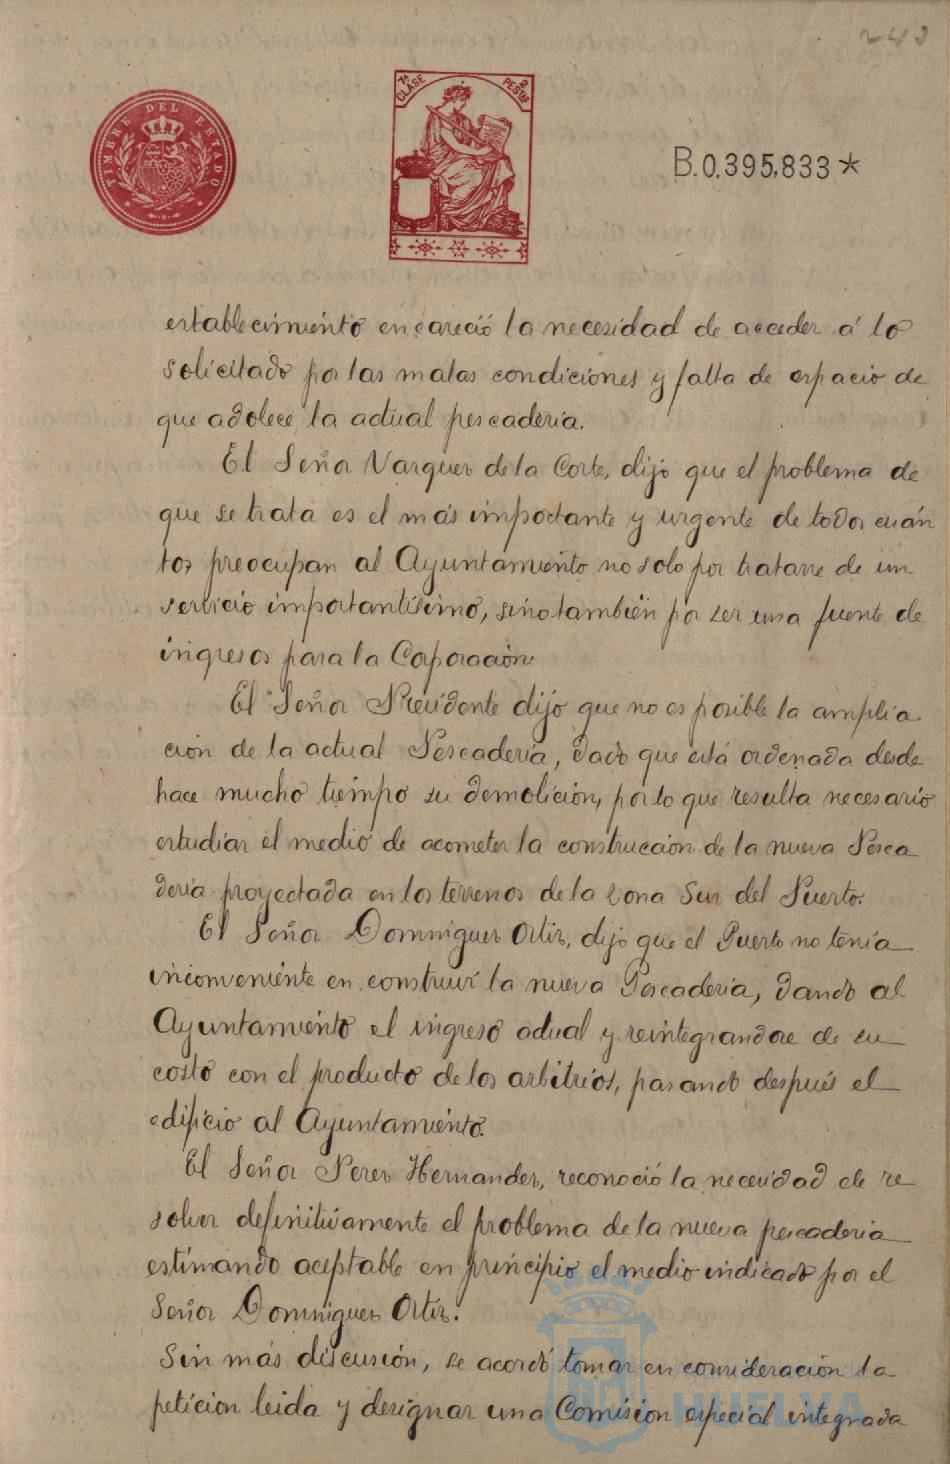 243
TIMBRE DEL ESTADO
7ª CLASE
2 PESTAS
B.0,395,833*
establecimiento encareció la necesidad de acceder á lo
solicitado por las malas condiciones y falta de espacio de
que adolece la actual pescaderia.
El Señor Vazquez de la Corte, dijo que el problema de
que se trata es el más importante y urgente de todos cuán
tos preocupan al Ayuntamiento no solo por tratarse de un
servicio importantísimo, sino también por ser una fuente de
ingresos para la Corporación.
El Señor Presidente dijo que no es posible la amplia
ción de la actual Pescadería, dado que está ordenada desde
hace mucho tiempo su demolición, por lo que resulta necesario
estudiar el medio de acometer la construcción de la nueva Pesca
dería proyectada en los terrenos de la zona Sur del Puerto.
El Señor Dominguez Ortiz, dijo que el Puerto no tenía
inconveniente en construir la nueva Pescaderia, dando al
Ayuntamiento el ingreso actual y reintegrandose de su
costo con el producto de los arbitrios, pasando después el
edificio al Ayuntamiento.
El Señor Perez Hernandez, reconoció la necesidad de re
solver definitivamente el problema de la nueva pescaderia
estimando aceptable en principio el medio indicado por el
Señor Dominguez Ortiz.
Sin más discusión, se acordó tomar en consideración la
peticion leida y designar una Comision especial integrada
HUELVA